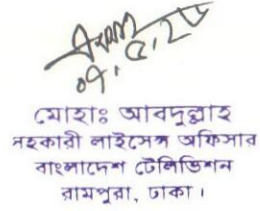 ০৭.৫.২৫
মোহাঃ আবদুল্লাহ
সহকারী লাইসেন্স অফিসার
বাংলাদেশ টেলিভিশন
রামপুরা, ঢাকা।